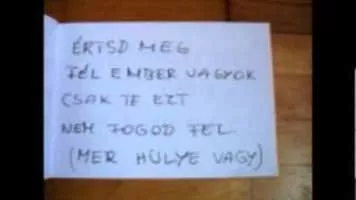 ÉRTSD MEG
FÉL EMBER VAGYOK
CSAK TE EZT
NEM FOGOD FEL
(MER HÜLYE VAGY)